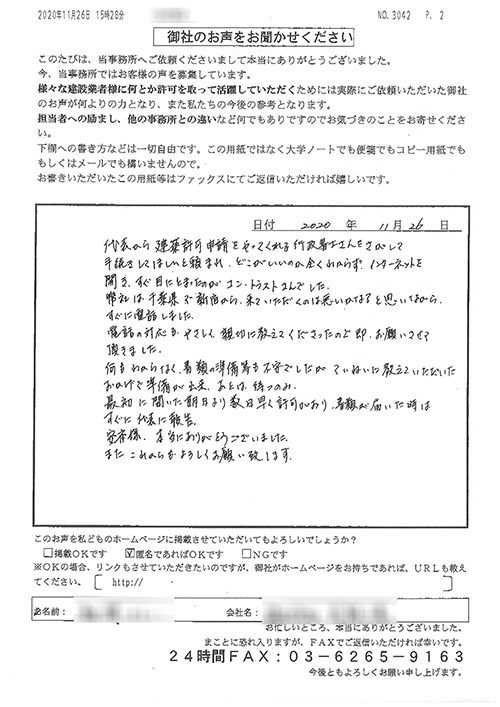 2020年11月26日 15時28分 NO. 3042 P. 2
御社のお声をお聞かせください
このたびは、当事務所へご依頼くださいまして本当にありがとうございました。
今、当事務所ではお客様の声を募集しています。
様々な建設業者様に何とか許可を取って活躍していただくためには実際にご依頼いただいた御社
のお声が何よりの力となり、また私たちの今後の参考となります。
担当者への励まし、他の事務所との違いなど何でもありですのでお気づきのことをお寄せくださ
い。
下欄への書き方などは一切自由です。この用紙ではなく大学ノートでも便箋でもコピー用紙でも
もしくはメールでも構いませんので。
お書きいただいたこの用紙等はファックスにてご返信いただければ嬉しいです。
日付 2020 年 11月 26 日
代表から 建築許可申請をやってくれる行政書士さんをさがして
手続きしてほしいと頼まれ、どこがいいのか全くわからず、インターネットを
開き、すぐ目にとまったのがコントラストさんでした。
弊社は千葉県で新宿から、来ていただくのは悪いかなぁと思いながら、
すぐに電話しました。
電話の対応も やさしく 親切に教えてくださったので即、お願いさせて
頂きました。
何もわからなく、書類の準備等も不安でしたが ていねいに教えていただいた
おかげで準備が出来、あとは、待つのみ。
最初に聞いた期日より数日早く許可がおり、書類が届いた時は
すぐに代表に報告。
本当にありがとうございました。
また これからもよろしくお願い致します。
このお声を私どものホームページに掲載させていただいてもよろしいでしょうか?
□掲載OKです ☑匿名であればOKです □NGです
※OKの場合、リンクもさせていただきたいのですが、御社がホームページをお持ちであれば、URLも教え
てください。 [ http:// ]
お名前： 会社名：
お忙しいところ、本当にありがとうございました。
まことに恐れ入りますが、FAXでご返信いただければ幸いです。
24時間FAX：03-6265-9163
今後ともよろしくお願い申し上げます。